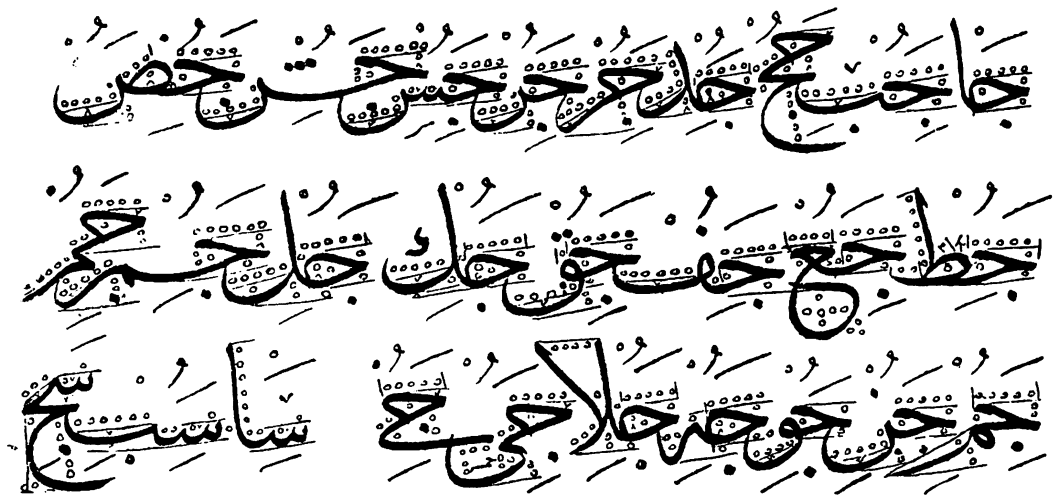 جا جب جج جد جر جر جس جش جض
جط جع جف جق جك جل جم جم
جم جن جو جه جلا جى جے سا سب سج